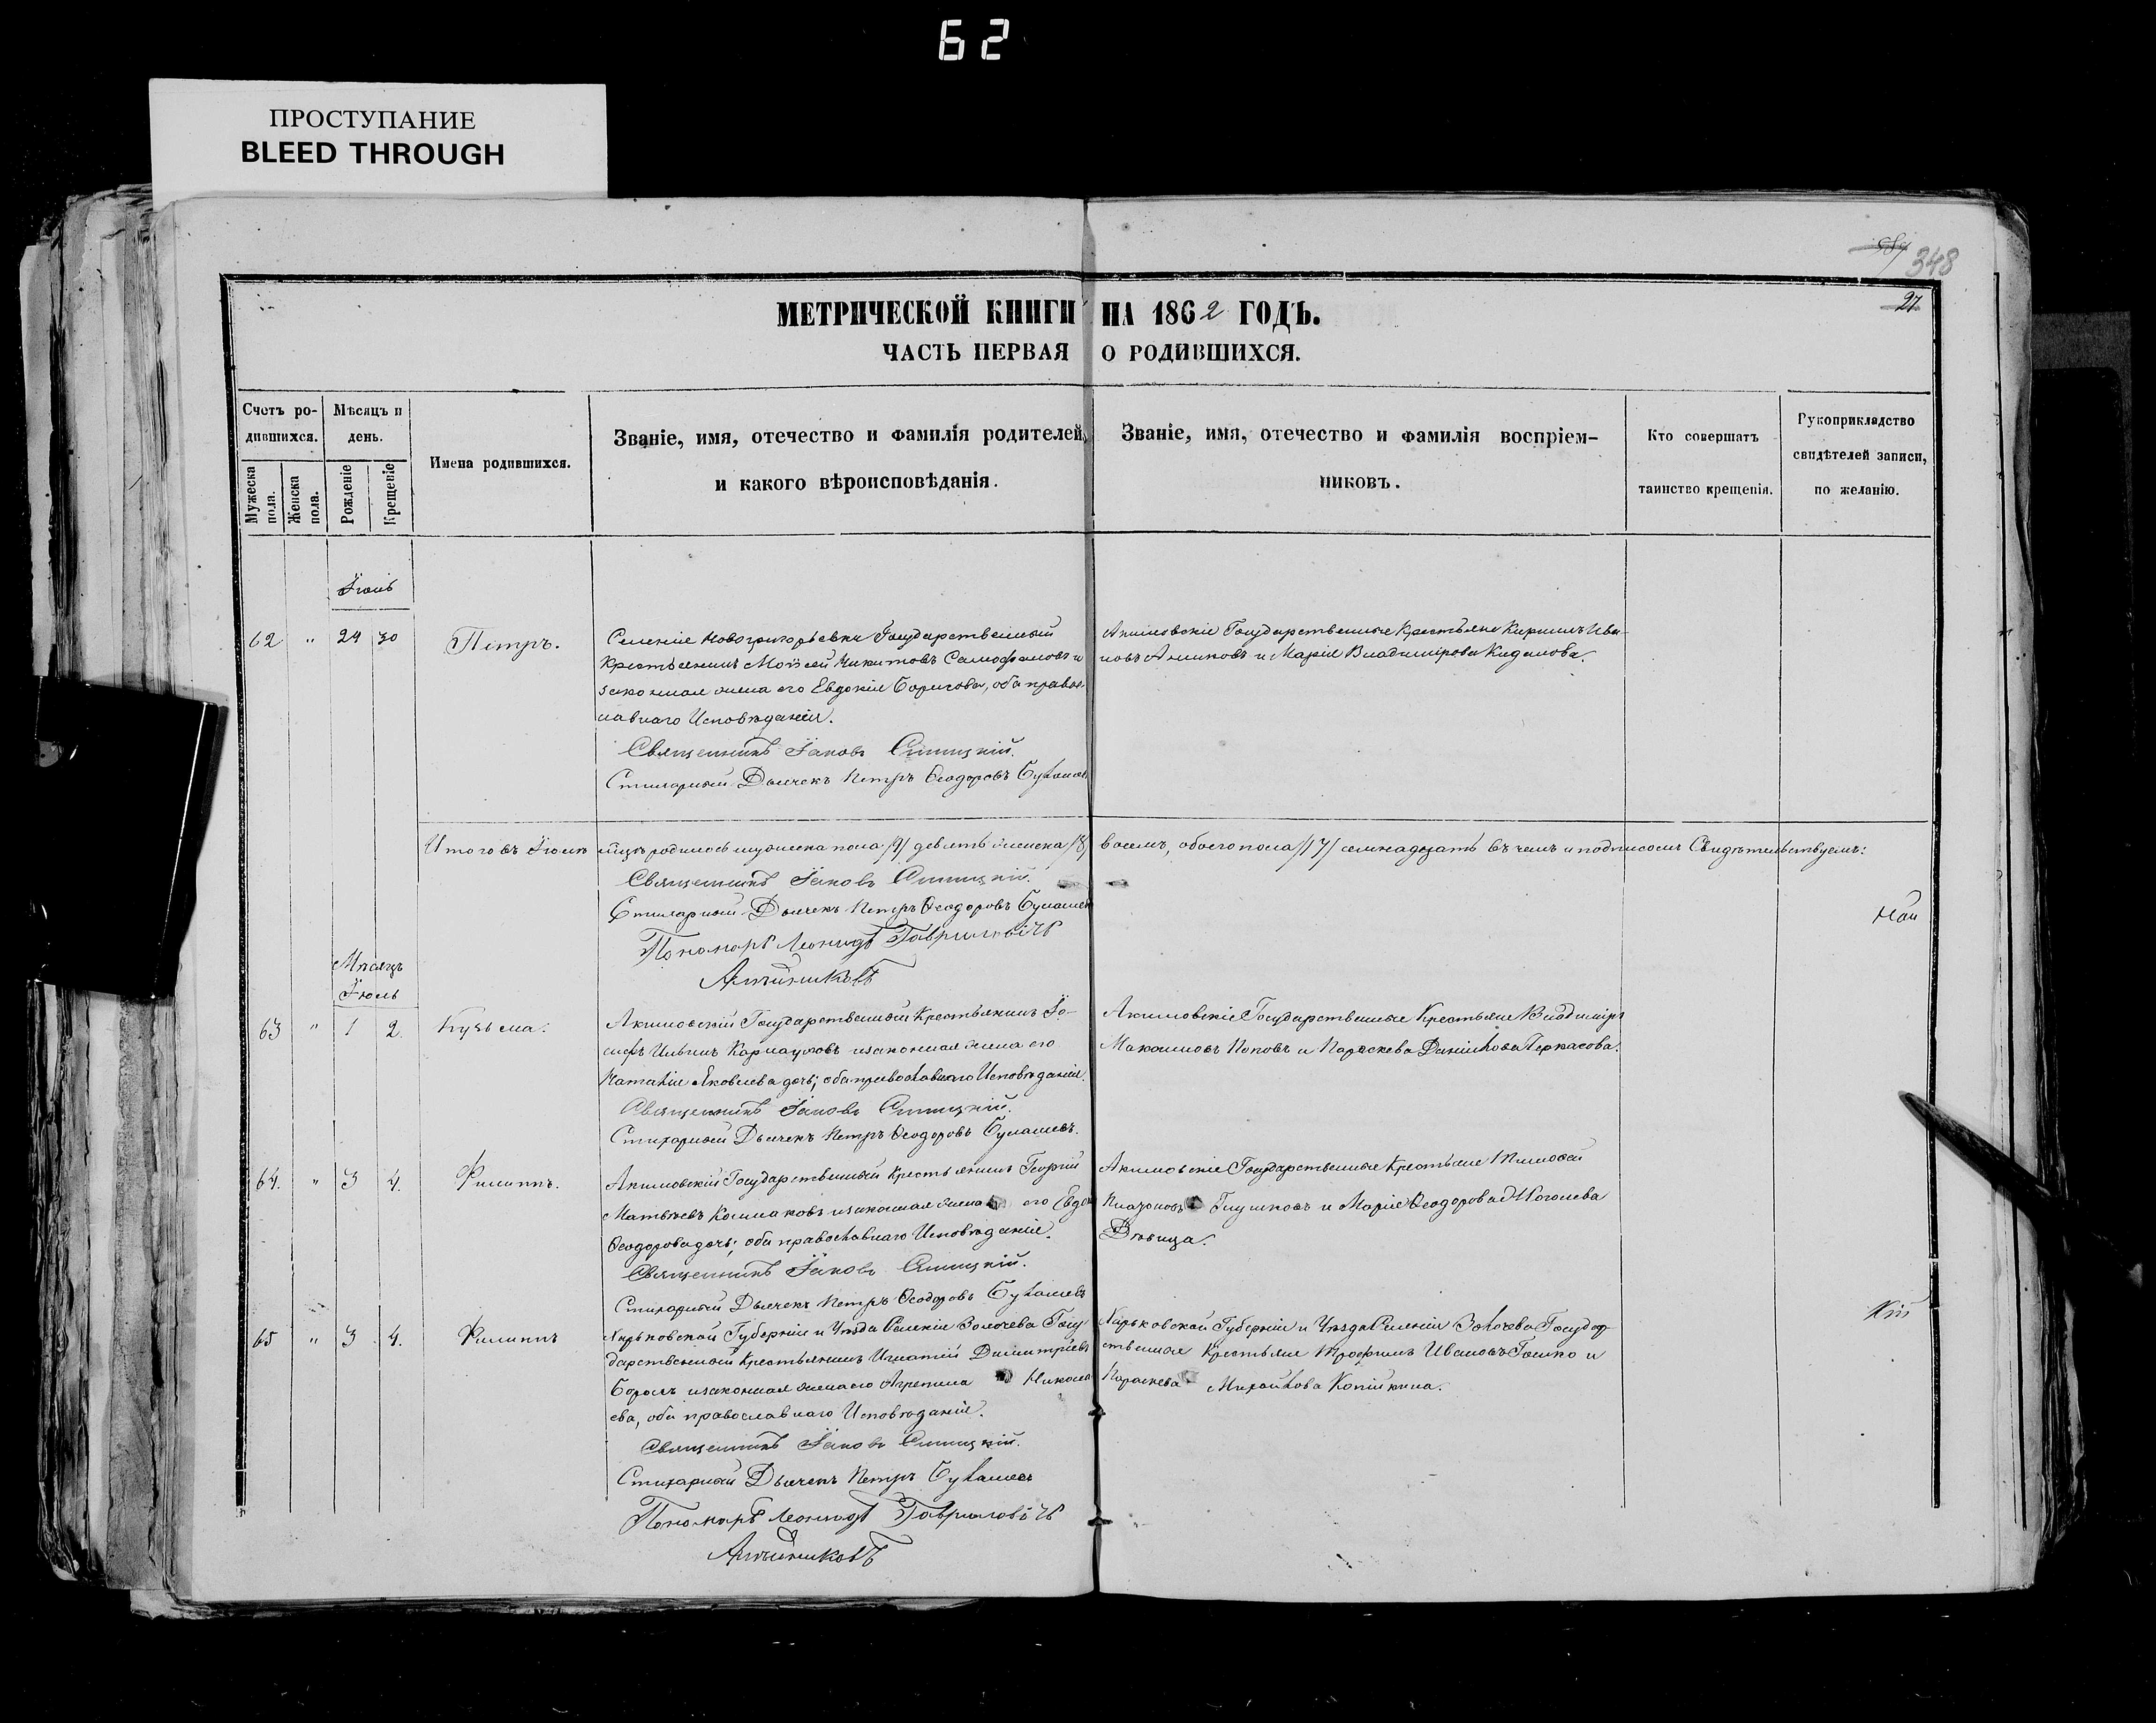 62
ПРОСТУПАНИЕ
BLEED THROUGH
348
27
МЕТРИЧЕСКОЙ КНИГИ НА 1862 ГОДЪ.
ЧАСТЬ ПЕРВАЯ О РОДИВШИХСЯ.
Счетъ ро-
дившихся.
Мужеска пола.
Женска пола.
Мѣсяцъ и
день.
Рожденіе
Крещеніе
Имена родившихся.
Званіе, имя, отечество и фамилія родителей,
и какого вѣроисповѣданія.
Званіе, имя, отечество и фамилія воспріем-
никовъ.
Кто совершатъ
таинство крещенія.
Рукоприкладство
свидѣтелей записи,
по желанію.
Іюнь
62 " 24 30 Петръ.
Селенія Новогригорьевки Государственный
Крестьянинъ Моѵсей Никитовъ и
законная жена его Евдокія Борисова, оба правос-
лавнаго Исповѣданія.
Священникъ Іаковъ
Стихарный Дьячекъ Петръ Ѳеодоровъ
Акимовскіе Государственные Крестьяне Кириллъ Ива-
новъ Аниковъ и Марія Владимірова
Итого въ Іюнѣ мцѣ родилось мужеска пола /9/ девять женска /8/ восемь, обоего пола /17/ семнадцать въ чемъ и подписомъ Свидѣтельствуемъ:
Священникъ Іаковъ
Стихарный Дьячекъ Петръ Ѳеодоровъ
Пономарь Леонидъ Гавриловичъ
Мѣсяцъ
Іюль
63 " 1 2 Кузьма.
Акимовскій Государственный Крестьянинъ Іо-
сифъ Ильинъ Карнауховъ и законная жена его
Наталія Яковлева дочь; оба православнаго Исповѣданія.
Священникъ Іаковъ
Стихарный Дьячекъ Петръ Ѳеодоровъ
Акимовскіе Государственные Крестьяне Владиміръ
Максимовъ Поповъ и Параскева Даніилова Черкасова.
64. " 3 4. Филиппъ.
Акимовскій Государственный Крестьянинъ Георгій
Матвѣевъ Колпаковъ и законная жена его
Ѳеодорова дочь; оба православнаго Исповѣданія.
Священникъ Іаковъ
Стихарный Дьячекъ Петръ Ѳеодоровъ
Акимовскіе Государственные Крестьяне Тимоѳей
Глушковъ и Марія Ѳеодорова
Дѣвица.
65 " 3 4. Филиппъ
Харьковской Губерніи и Уѣзда Селенія Золочева Госу-
дарственный Крестьянинъ Игнатій Димитріевъ
и законная жена его Агрепина Никола-
ева, оба православнаго Исповѣданія.
Священникъ Іаковъ
Стихарный Дьячекъ Петръ
Пономарь Леонидъ Гавриловичъ
Харьковской Губерніи и Уѣзда Селенія Золочева Государ-
ственные Крестьяне Трофимъ Ивановъ и
Параскева Михайлова